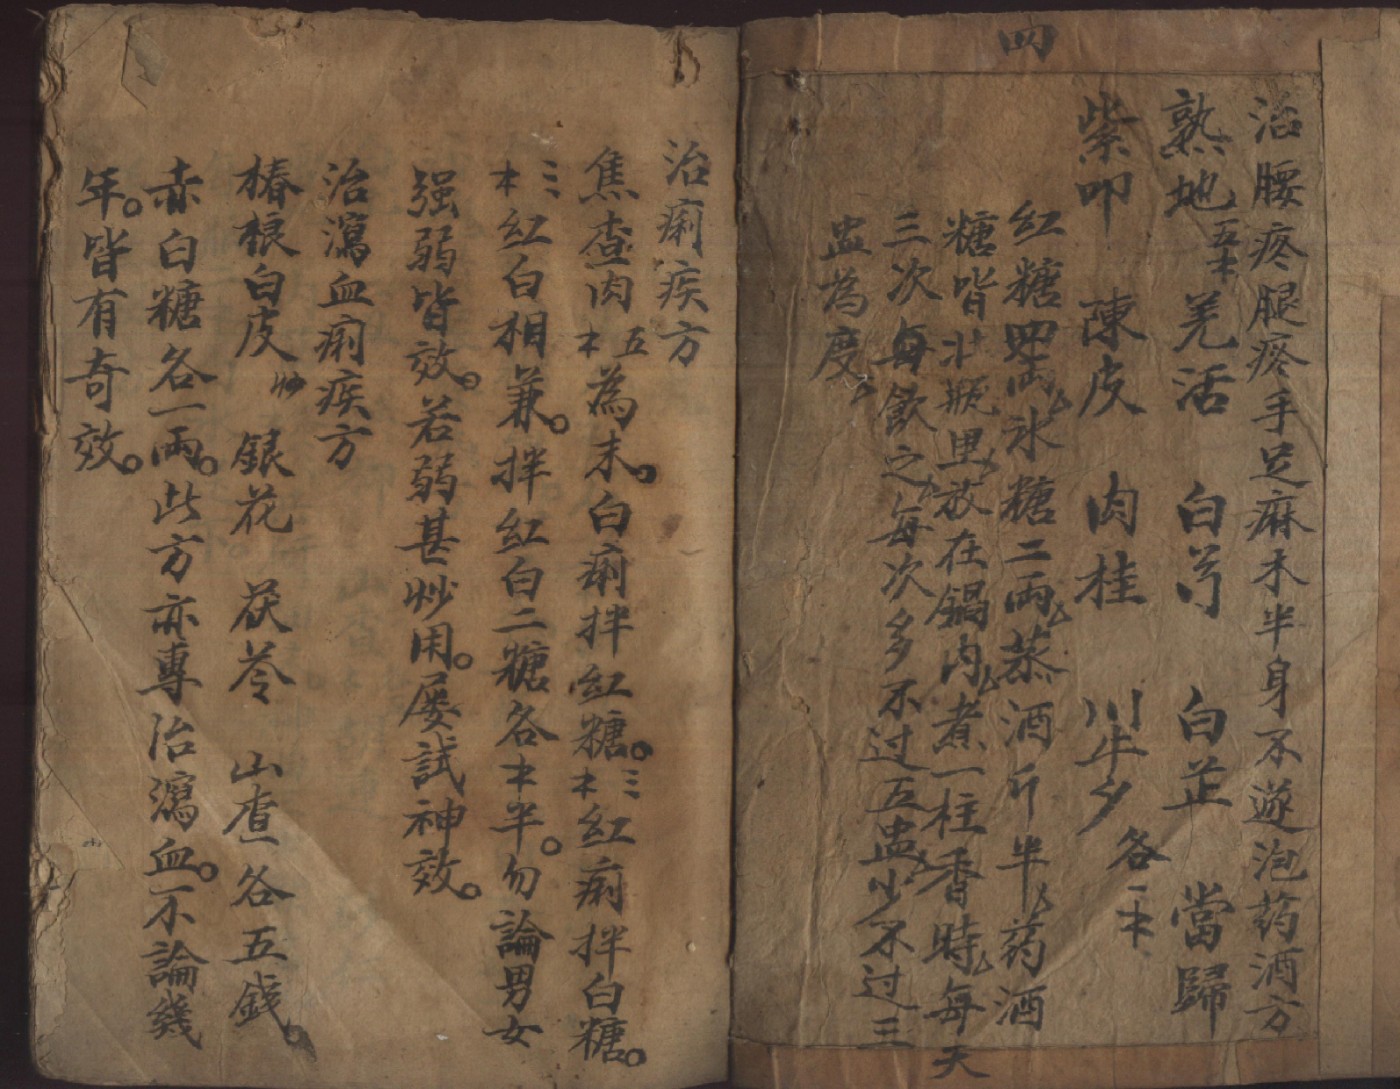 四
治腰疼腿疼手足麻木半身不遂泡药酒方
熟地五钱 羌活 白芍 白芷 當歸
紫叩 陳皮 肉桂 川牛夕 各一钱
红糖四兩氷糖二兩蒸酒斤半药酒
糖皆壮瓶里放在鍋内煮一柱香時每天
三次每飲之每次多不过五盅少不过三
盅為度
治痢疾方
焦查肉五钱為末。白痢拌红糖。三钱红痢拌白糖。
三钱红白相兼。拌红白二糖各钱半。勿論男女
强弱皆效。若弱甚炒用。屡試神效。
治瀉血痢疾方
椿根白皮炒 銀花 茯苓 山查各五錢。
赤白糖各一兩。此方亦專治瀉血。不論幾
年。皆有奇效。